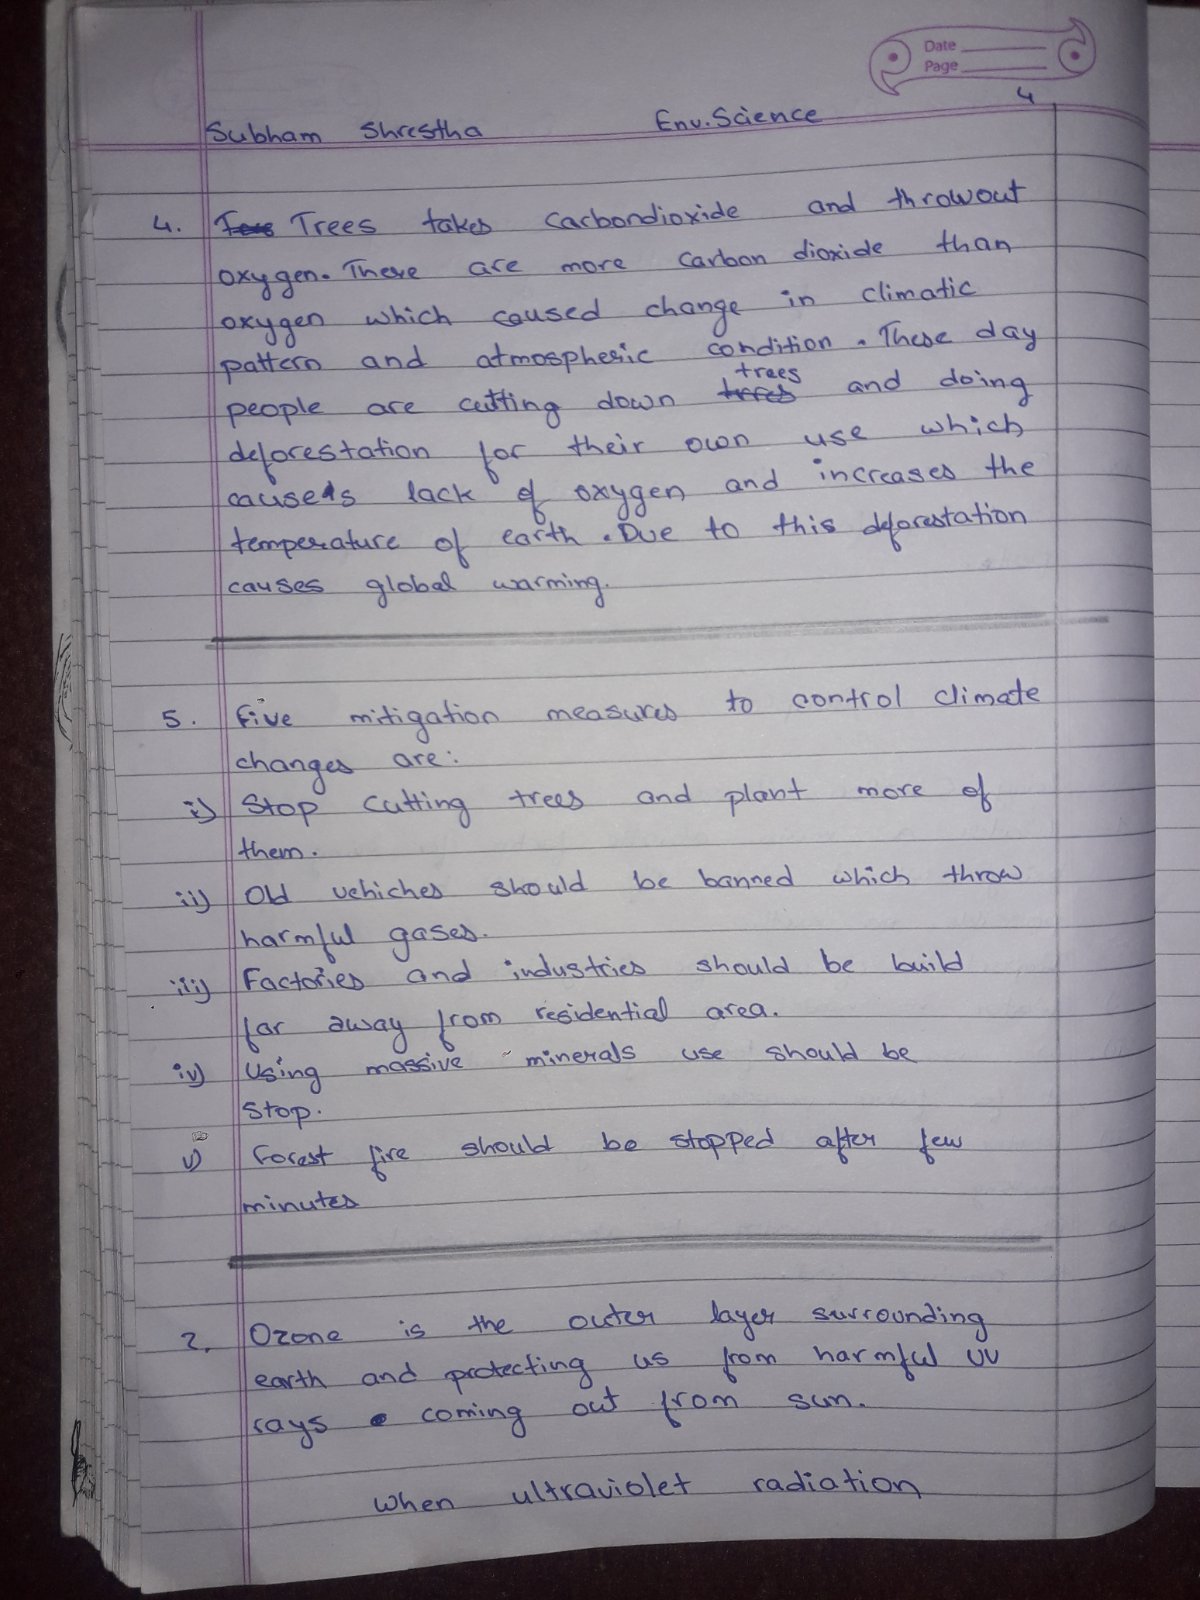 Date
Page
4
Subham Shrestha Env.Science
4. Trees takes carbondioxide and throwout
oxygen. There are more carbon dioxide than
oxygen which caused change in climatic
pattern and atmospheric condition. These day
trees
people are cutting down trres and doing
deforestation for their own use which
causes lack of oxygen and increases the
temperature of earth. Due to this deforestation
causes global warming.
5. Five mitigation measures to control climate
changes are:
i) Stop cutting trees and plant more of
them.
ii) Old vehiches should be banned which throw
harmful gases.
iii) Factories and industries should be build
far away from residential area.
iv) Using massive minerals use should be
stop.
v) Forest fire should be stopped after few
minutes
2. Ozone is the outer layer surrounding
earth and protecting us from harmful UV
rays coming out from sun.
When ultraviolet radiation